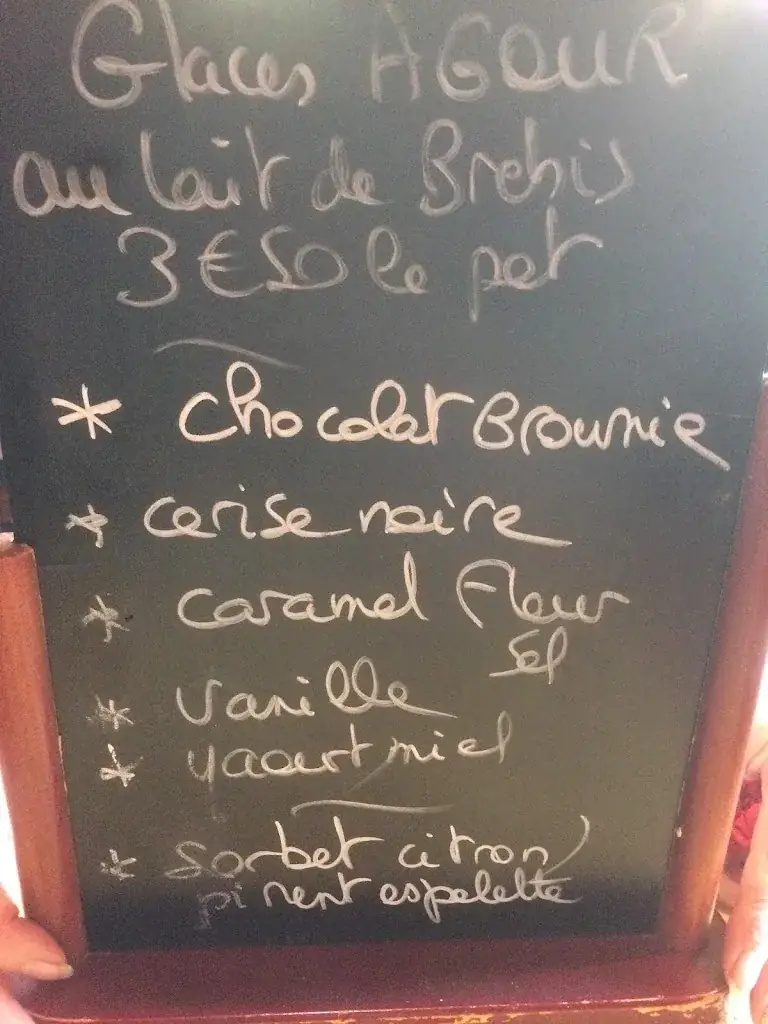 Glaces AGOUR
au lait de Brebis
3€50 le pot
* chocolat Brownie
* cerise noire
* caramel Fleur
Sel
* Vanille
* yaourt/miel
* sorbet citron/
piment espelette